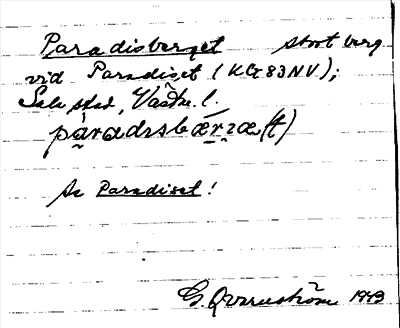 Paradisberget stort berg
vid Paradiset (KG83NV);
Sala stad, Västm. l.
paradisbærjæ(t)
Se Paradiset!
G. Qvarnström 1943